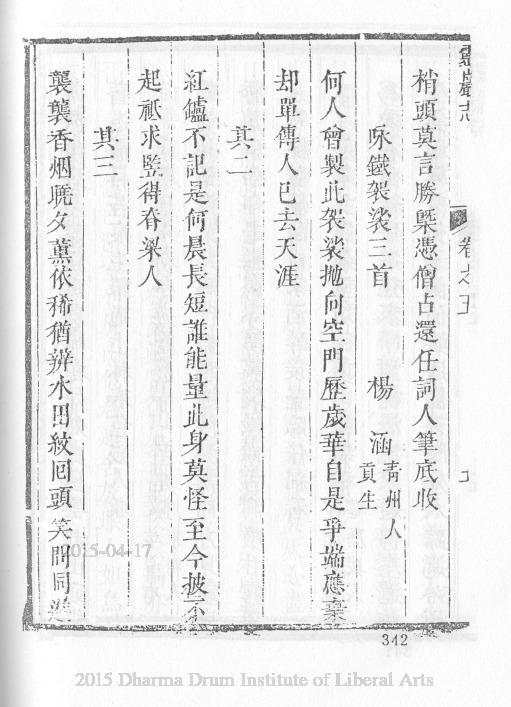 靈巖志 卷之五
梢頭莫言勝槩憑僧占還任詞人筆底收
咏鐵袈裟三首 楊涵 青州人 貢生
何人曾製此袈裟拋向空門歷歲華自是爭端應棄
却單傳人已去天涯
其二
紅鑪不記是何晨長短誰能量此身莫怪至今披不
起祇求監得脊梁人
其三
襲襲香烟晩夕薰依稀猶辨水田紋囘頭笑問同遊
342
2015-04-17
2015 Dharma Drum Institute of Liberal Arts